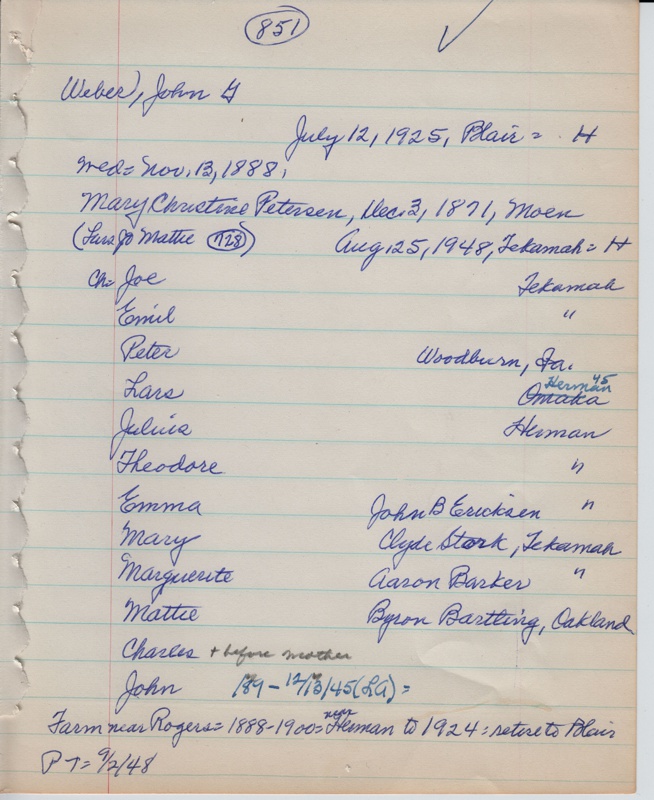 851 ✓
Weber, John G
July 12, 1925, Blair = H
Wed = Nov. 13, 1888,
Mary Christine Petersen, Dec. 3, 1871, Moen
(Lars Jo Mattie 728) Aug. 25, 1948, Tekamah = H
Ch = Joe Tekamah
Emil "
Peter Woodburn, Ia.
Lars Omaha Herman 45
Julius Herman
Theodore "
Emma John B Ericksen "
Mary Clyde Stork, Tekamah
Marguerite Aaron Barker "
Mattie Byron Bartling, Oakland
Charles + before mother
John 189 - 12/13/45 (LA) =
Farm near Rogers = 1888-1900 = near Herman to 1924 : retire to Blair
P T = 9/2/48